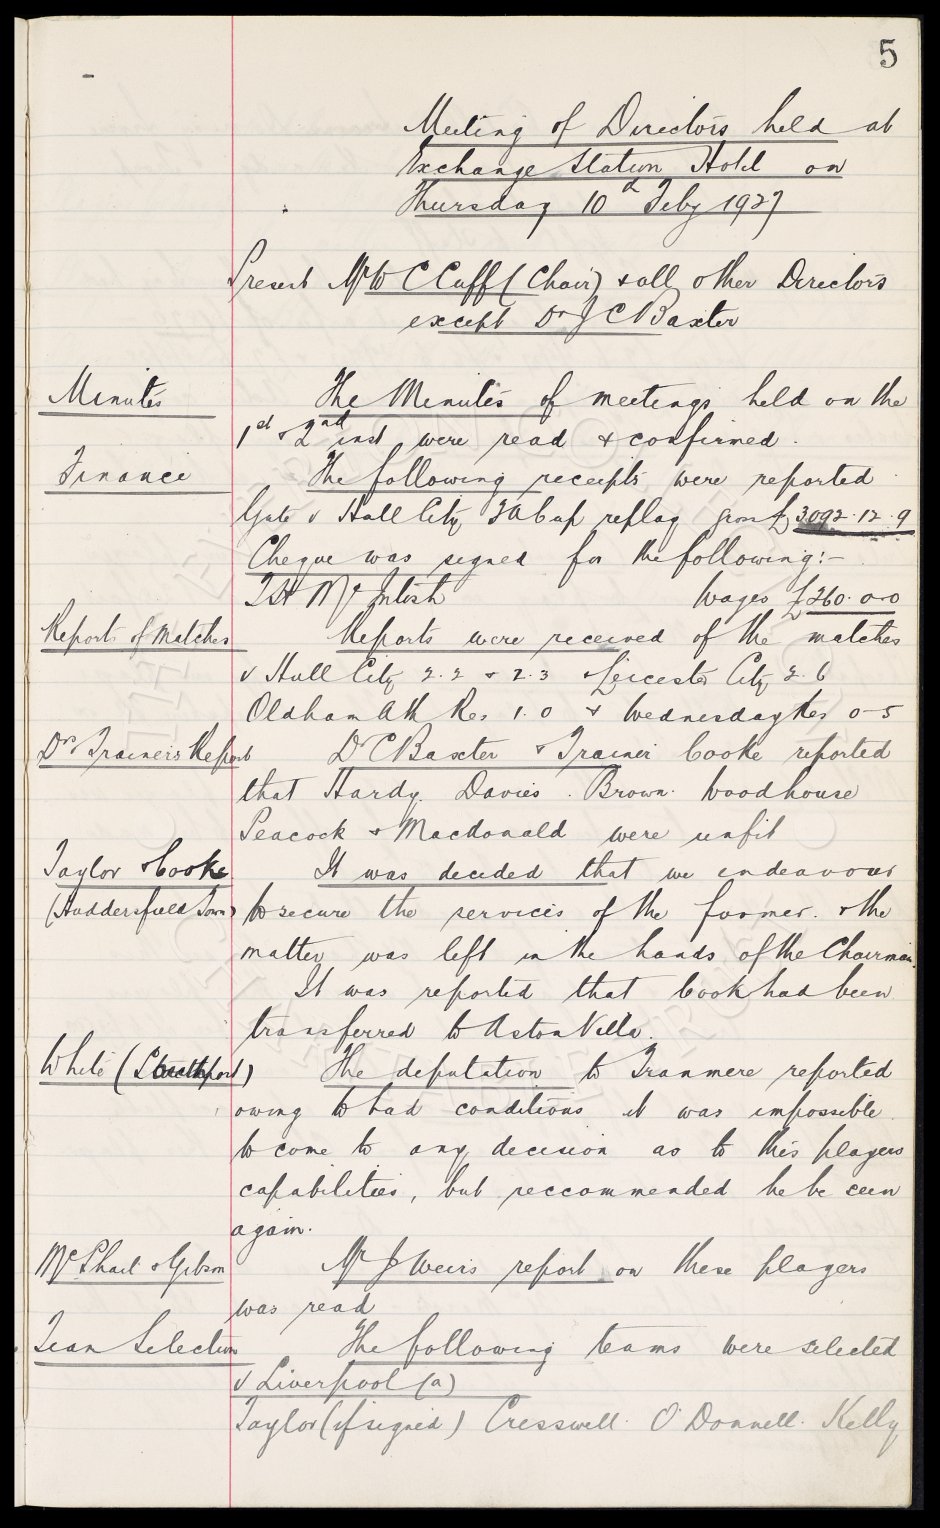 5
Meeting of Directors held at
Exchange Station Hotel on
Thursday 10th Feby 1927
Present Mr W C Cuff (Chair) & all other Directors
except Dr J C Baxter
Minutes The Minutes of meetings held on the
1st & 2nd inst were read & confirmed.
Finance The following receipts were reported
Gate v Hull City replay gross £3092.12.9
Cheque was signed for the following:-
T H McIntosh Wages £260.0.0
Reports of Matches Reports were received of the matches
v Hull City 2.2 & 2.3 & Leicester City 2.6
Oldham Ath Res 1.0 & Wednesday Res 0-5
Dr & Trainers Report Dr C Baxter & Trainer Cooke reported
that Hardy. Davies. Brown. Woodhouse
Peacock & Macdonald were unfit
Taylor & Cooke It was decided that we endeavour
(Huddersfield Town) to secure the services of the former. & the
matter was left in the hands of the Chairman.
It was reported that Cook had been
transferred to Aston Villa.
White (Southport) The deputation to Tranmere reported
owing to bad conditions it was impossible
to come to any decision as to this players
capabilities, but reccommended he be seen
again.
McPhail & Gibson Mr J Weirs report on these players
was read
Team Selection The following teams were selected
v Liverpool (a)
Taylor (if signed) Cresswell. O'Donnell. Kelly